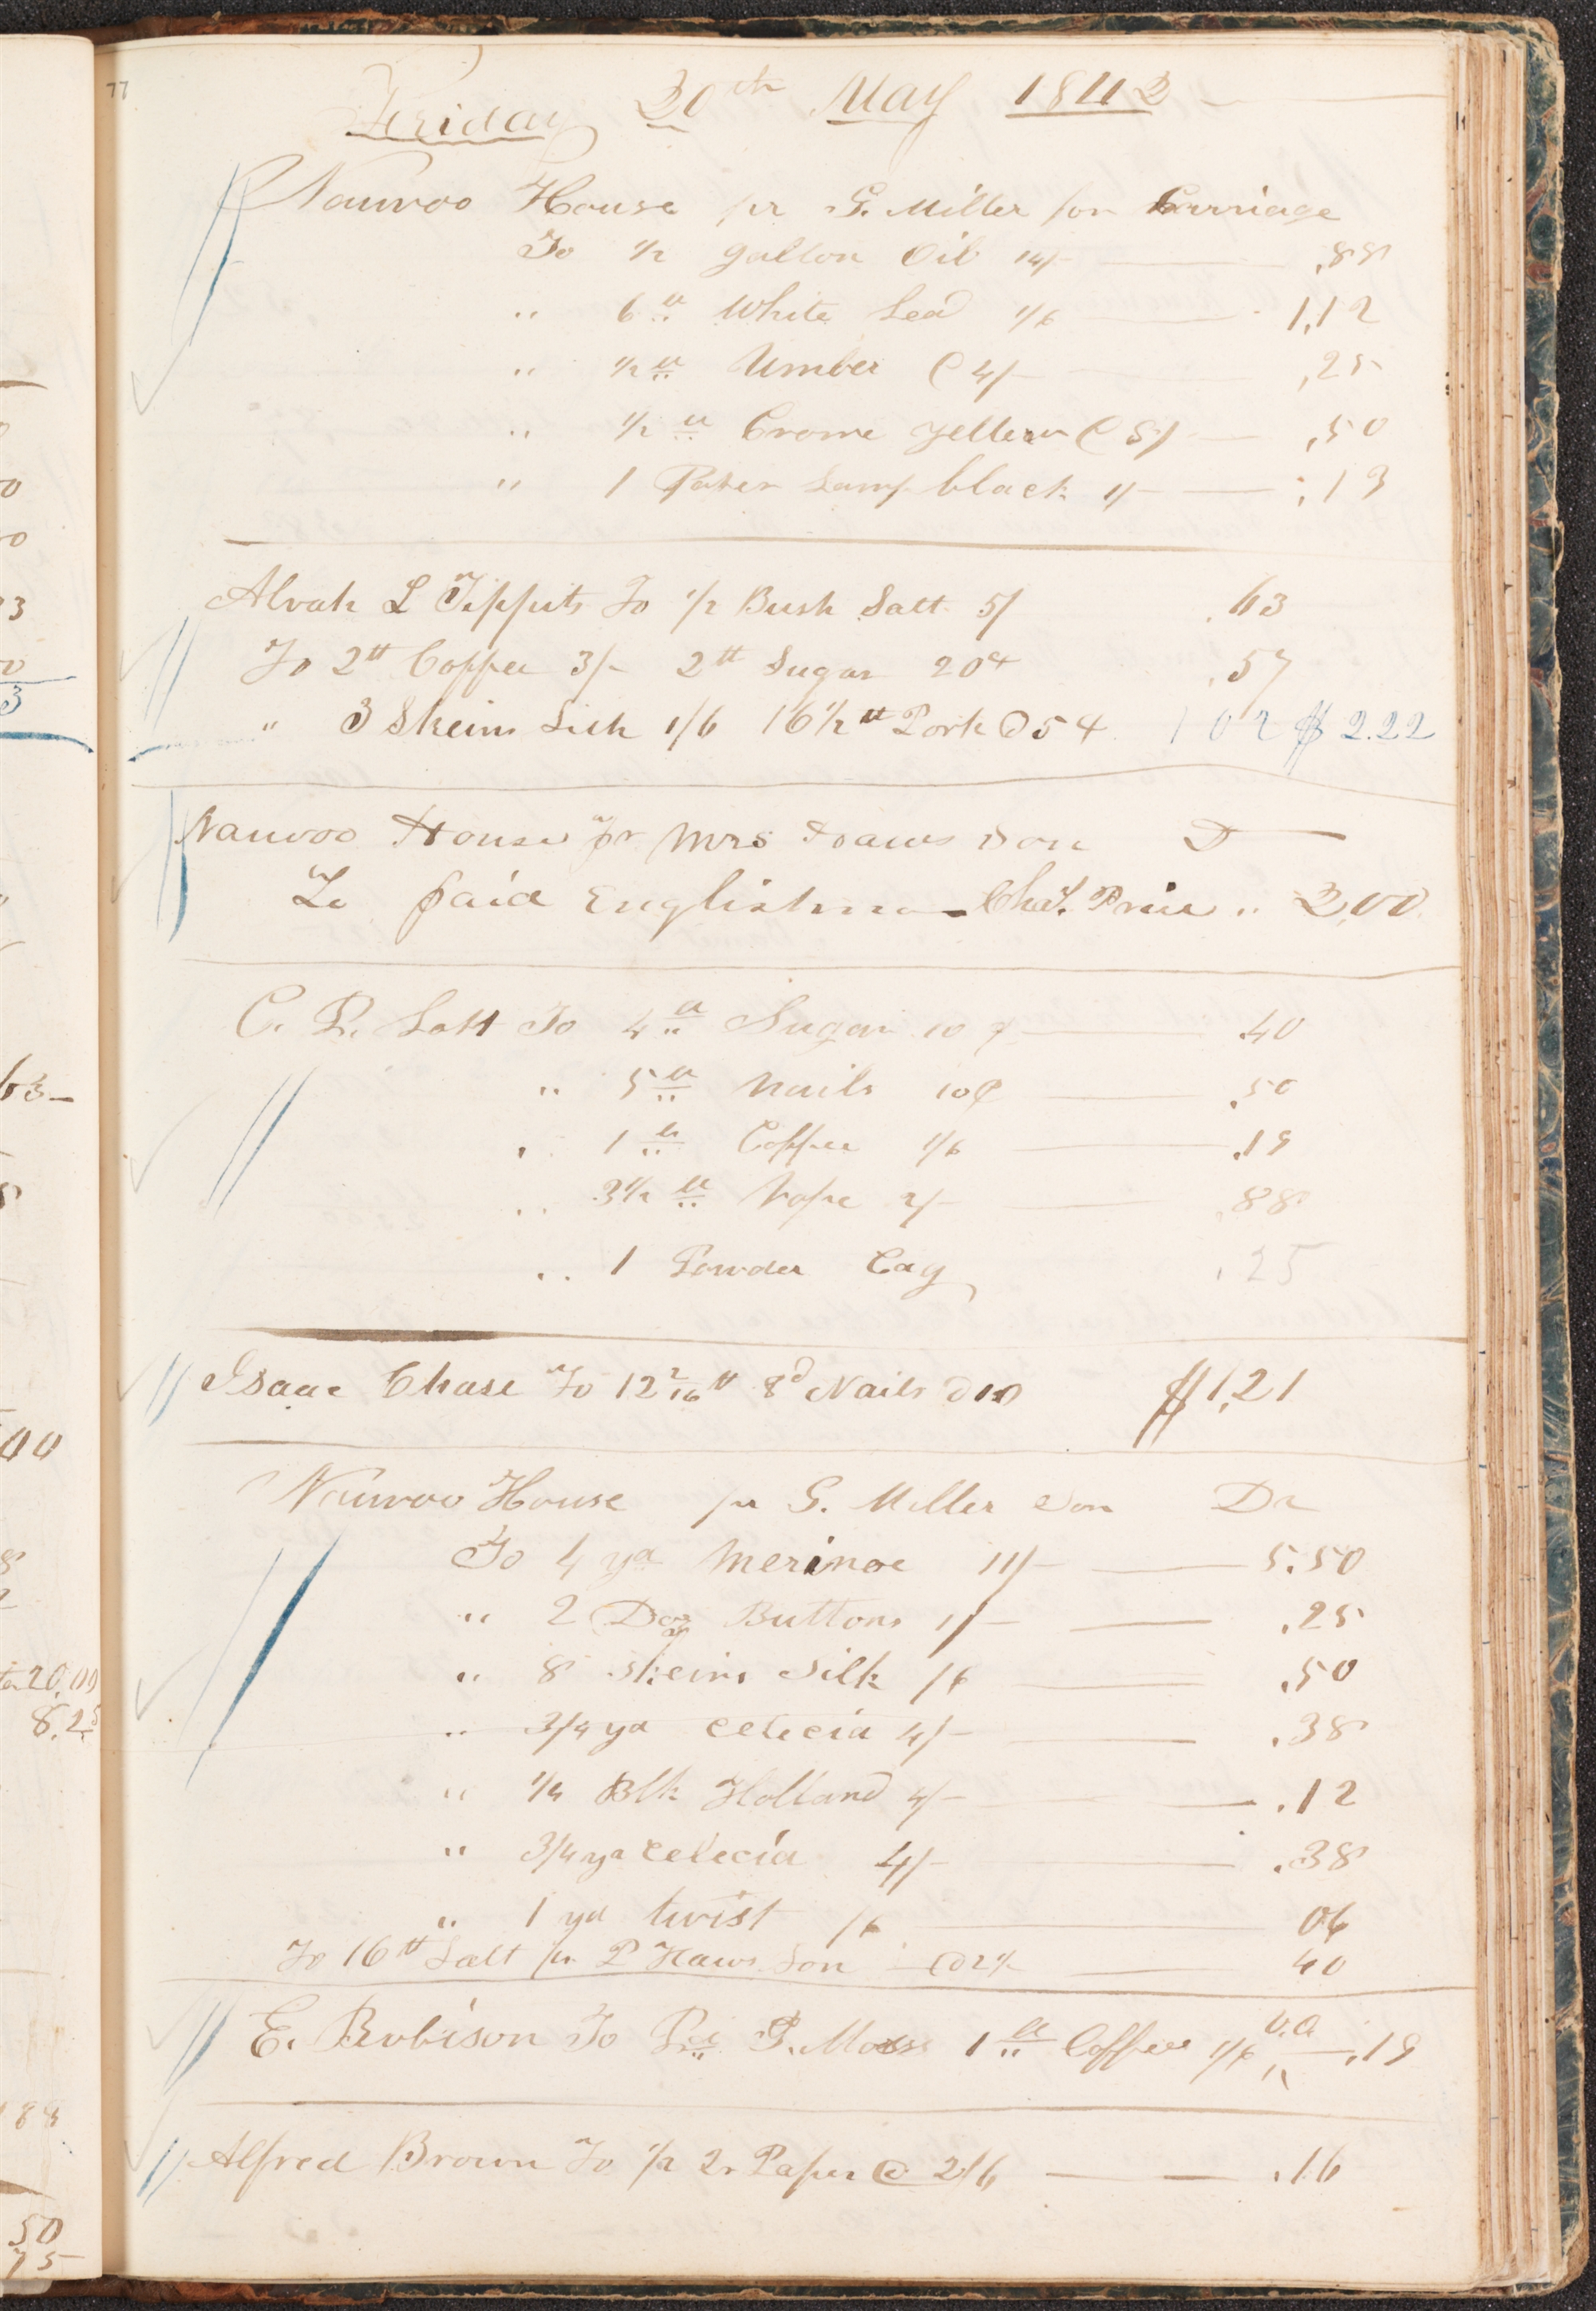 77
Feriday 20th May 1842
Nauvoo House pr G. Miller for Carriage
To 1/2 gallon Oil 14/- .88
" 6 lb White Lead 1/6 1,12
" 1/2 lb Umber @ 4/- ,25
" 1/2 lb Crome yellow @ 8/ ,50
" 1 Paper Lamp black 1/- ,13
Alvah L Tippits To 1/2 Bush Salt 5/ .63
To 2lb Coffee 3/- 2lb Sugar 20¢ .57
" 3 Skeins Silk 1/6 16 1/2 lb Pork @ 5¢ 102 $ 2.22
Nauvoo House pr Mrs Haws Son D
To paid Englishman Chas. Price " 3,00
C. P. Lott To 4 lb Sugar 10 ¢ .40
" 5 lb Nails 10¢ .50
" 1 lb Coffee 1/6 .19
" 3 1/2 lb Rope 2/- .88
" 1 Powder Cag .25
Isaac Chase To 12 2/16 lb 8d Nails @ 10 $ 1,21
Nauvoo House pr G. Miller Son Dr
To 4 yd Merinoe 11/- 5.50
" 2 Doz Buttons 1/- .25
" 8 skeins Silk /6 .50
" 3/4 yd Celecia 4/- .38
" 1/4 Blk Holland 4/- .12
" 3/4 yd Celecia 4/- .38
" 1 yd twist /6 06
To 16 lb Salt pr P Haws Son 40
E. Robison To P. Moss 1 lb Coffee 1/6 .19
Alfred Brown To 1/2 Qr Paper @ 2/6 .16
63-
00
20,00
8.25
188
50
75